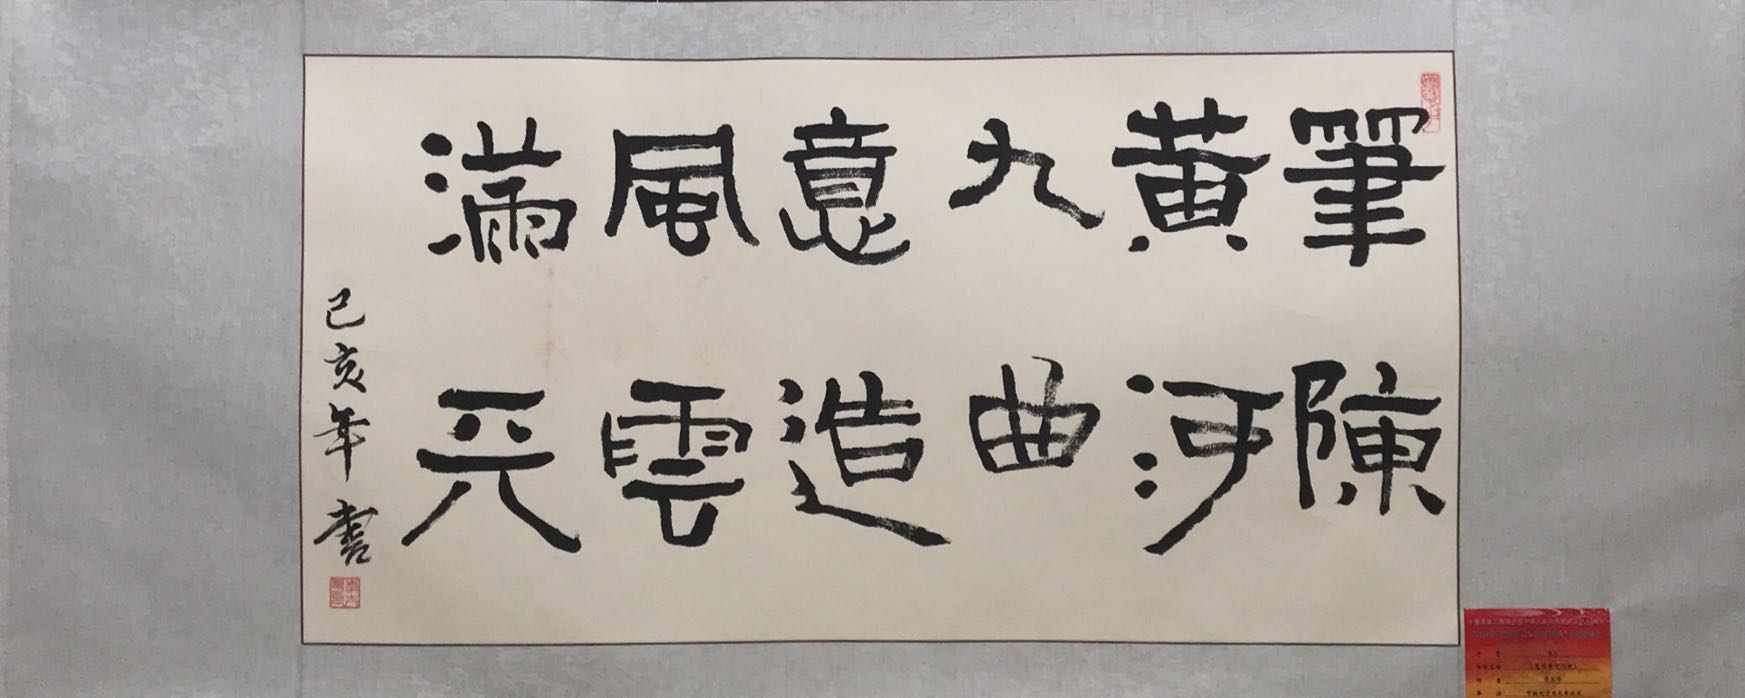 筆陳
黄河
九曲
意造
風雲
滿天
己亥年書